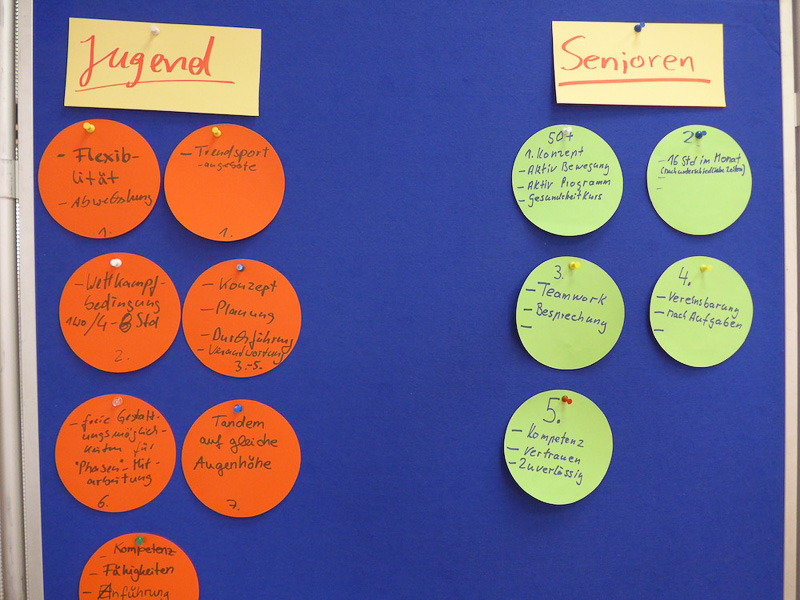 Jugend
- Flexib-
lität
- Abwechslung
1.
- Trendsport
- angebote
1.
- Wettkampf-
bedingung
/4-8 Std
2.
- Konzept
- Planung
- Durchführung
- Verantwortung
3.-5.
- freie Gestalt-
ungsmöglich-
für
"Phasen"-Mit-
arbeitung
6.
Tandem
auf gleiche
Augenhöhe
7.
- Kompetenz
- Fähigkeiten
- Anführung
Senioren
50+
1. Konzept
- Aktiv Bewegung
- Aktiv Programm
- Gesundheitkurs
2.
- 16 Std im Monat
(nach unterschiedliche Zeiten)
-
-
3.
- Teamwork
- Besprechung
-
4.
- Vereinsbarung
- nach Aufgaben
-
5.
- Kompetenz
- Vertrauen
- Zuverlässig